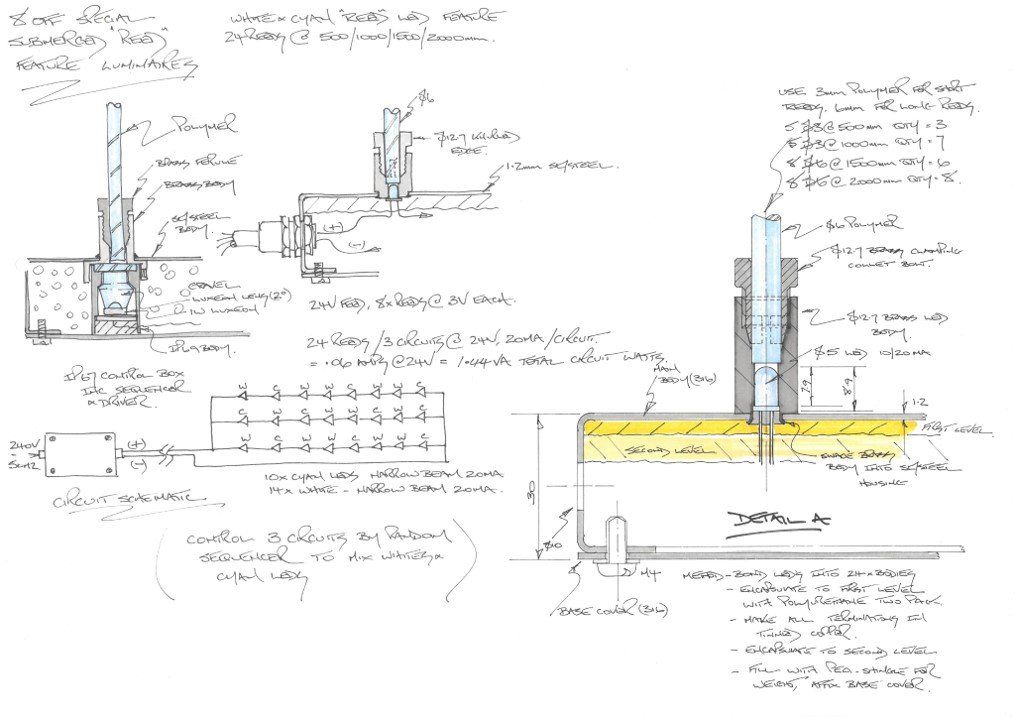 8 OFF SPECIAL
SUBMERGED "REED"
FEATURE LUMINAIRES
WHITE & CYAN "REED" LED FEATURE
24 REEDS @ 500/1000/1500/2000mm.
POLYMER
BRASS FERULE
BRASS BODY
S/STEEL
BODY.
LUXEON LENS (2°)
1W LUXEON
IP69 BODY.
Ø6
Ø12.7 KNURLED
EDGE.
1.2mm S/STEEL.
(+)
(-)
24V FEED, 8x REEDS @ 3V EACH.
24 REEDS / 3 CIRCUITS @ 24V, 20MA/CIRCUIT.
= .06 AMPS @ 24V = 1.44VA TOTAL CIRCUIT WATTS.
IP67 CONTROL BOX
INC SEQUENCER
& DRIVER.
240V
50HZ
(+)
(-)
W C W C W W C
W C W C W W C
W C W C W W C
10x CYAN LEDS NARROW BEAM 20MA
14x WHITE - NARROW BEAM 20MA.
CIRCUIT SCHEMATIC
(CONTROL 3 CIRCUITS BY RANDOM
SEQUENCER TO MIX WHITES &
CYAN LEDS)
USE 3mm POLYMER FOR SHORT
REEDS, 6mm FOR LONG REEDS.
5 Ø3 @ 500mm QTY = 3
5 Ø3 @ 1000mm QTY = 7
8 Ø6 @ 1500mm QTY = 6
8 Ø6 @ 2000mm QTY = 8.
Ø6 POLYMER
Ø12.7 BRASS CLAMPING
COLLET BOLT.
Ø12.7 BRASS LED
BODY.
Ø5 LED 10/20MA
MAIN
BODY (316)
7.9
8.9
1.2
FIRST LEVEL
SECOND LEVEL
SWAGE BRASS
BODY INTO S/STEEL
HOUSING
30
Ø10
M4
BASE COVER (316)
DETAIL A
METHOD - BOND LEDS INTO 24x BODIES
- ENCAPSULATE TO FIRST LEVEL
WITH POLYURETHANE TWO PACK.
- MAKE ALL TERMINATIONS IN
TINNED COPPER.
- ENCAPSULATE TO SECOND LEVEL
- FILL WITH PEA-SHINGLE FOR
WEIGHT, AFFIX BASE COVER.